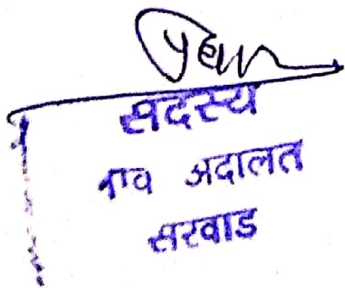 सदस्य
अदालत
सरवाड